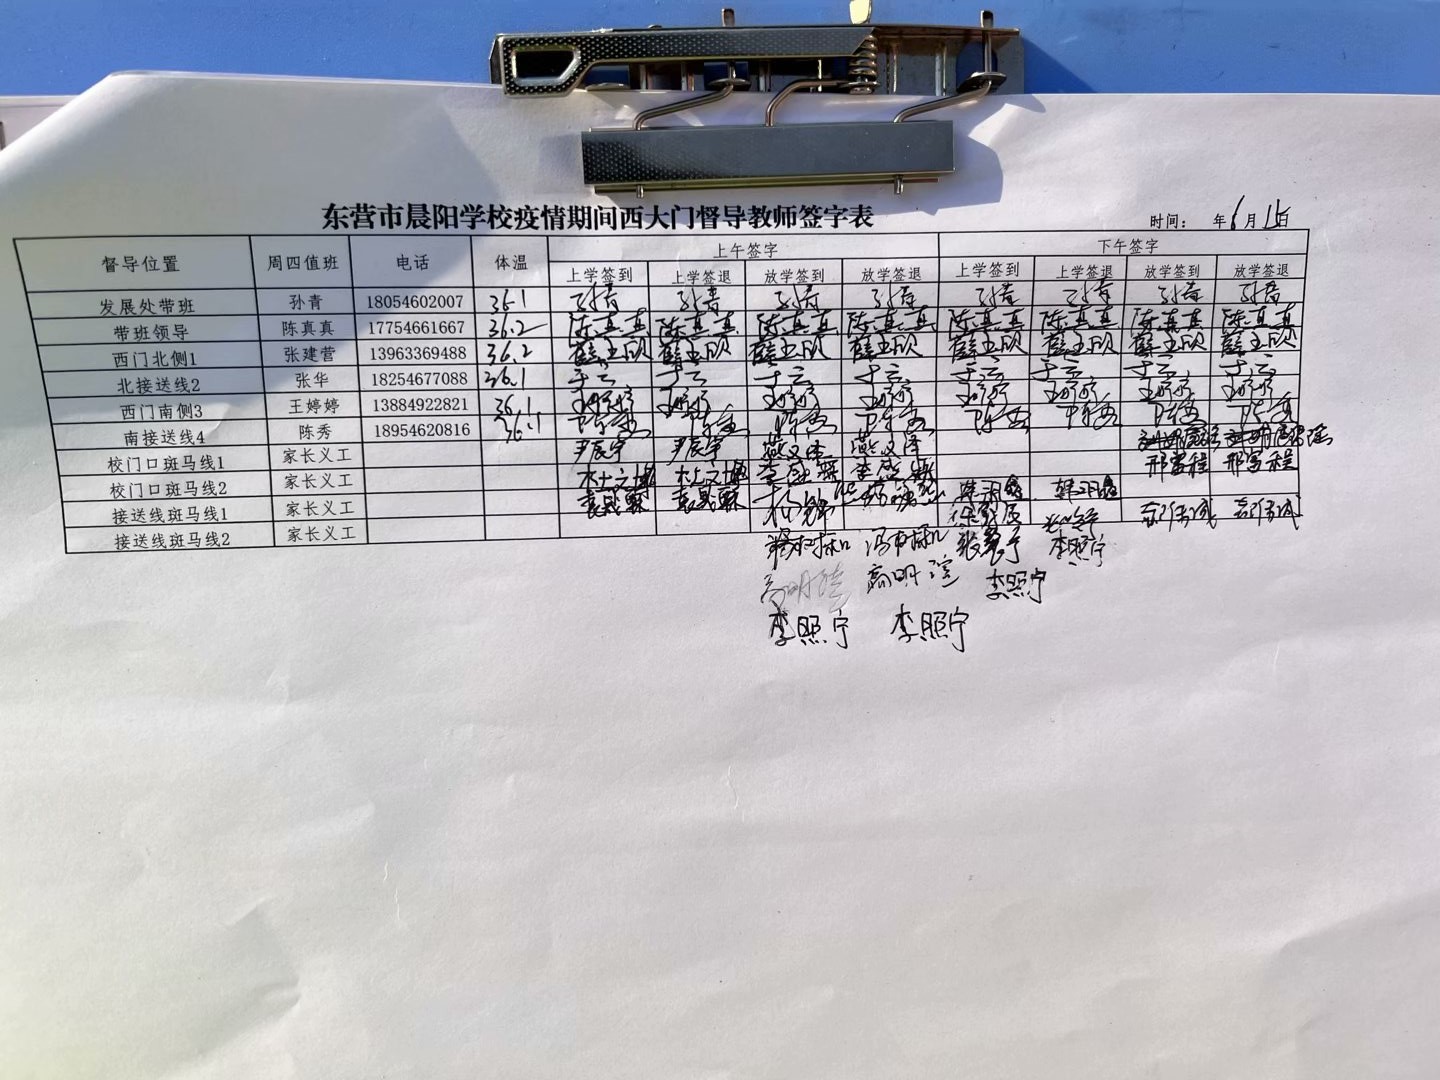 东营市晨阳学校疫情期间西大门督导教师签字表
时间： 年6月15日
督导位置 周四值班 电话 体温 上午签字 下午签字
上学签到 上学签退 放学签到 放学签退 上学签到 上学签退 放学签到 放学签退
发展处带班 孙青 18054602007 36.1 孙青 孙青 孙青 孙青 孙青 孙青 孙青 孙青
带班领导 陈真真 17754661667 36.2 陈真真 陈真真 陈真真 陈真真 陈真真 陈真真 陈真真 陈真真
西门北侧1 张建营 13963369488 36.2 薛玉欣 薛玉欣 薛玉欣 薛玉欣 薛玉欣 薛玉欣 薛玉欣 薛玉欣
北接送线2 张华 18254677088 36.1 于云 于云 于云 于云 于云 于云 于云 于云
西门南侧3 王婷婷 13884922821 36.1 王婷婷 王婷婷 王婷婷 王婷婷 王婷婷 王婷婷 王婷婷 王婷婷
南接送线4 陈秀 18954620816 36.1 陈秀 陈秀 陈秀 陈秀 陈秀 陈秀 陈秀 陈秀
校门口斑马线1 家长义工 尹辰宇 尹辰宇 燕义泽 燕义泽
校门口斑马线2 家长义工 邢富程 邢富程
接送线斑马线1 家长义工
接送线斑马线2 家长义工
李照宁
高明萱 李照宁
李照宁 李照宁